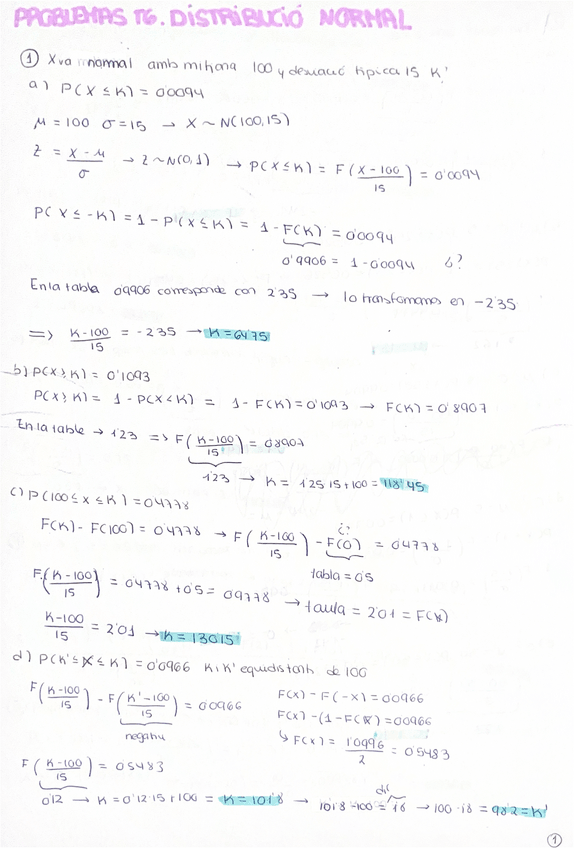 PROBLEMAS T6. DISTRIBUCIÓ NORMAL
① X va normal amb mitjana 100 y desviació típica 15 K?
a) P(X ≤ K) = 0'0094
μ = 100 σ = 15 → X ~ N(100,15)
Z = (X - μ)/σ → Z ~ N(0,1) → P(X ≤ K) = F((X-100)/15) = 0'0094
P(X ≤ -K) = 1 - P(X ≤ K) = 1 - F(K) = 0'0094
0'9906 = 1 - 0'0094 ¿?
En la tabla 0'9906 corresponde con 2'35 → lo transformamos en -2'35
=> (K-100)/15 = -2'35 → K = 64'75
b) P(X ≥ K) = 0'1093
P(X ≥ K) = 1 - P(X < K) = 1 - F(K) = 0'1093 → F(K) = 0'8907
En la table → 1'23 => F((K-100)/15) = 0'8907
1'23 → K = 1'23·15+100 = 118'45
c) P(100 ≤ X ≤ K) = 0'4778
F(K) - F(100) = 0'4778 → F((K-100)/15) - F(0) = 0'4778
¿?
tabla = 0'5
F((K-100)/15) = 0'4778 + 0'5 = 0'9778 → taula = 2'01 = F(X)
(K-100)/15 = 2'01 → K = 130'15
d) P(K' ≤ X ≤ K) = 0'0966 K i K' equidistants de 100
F((K-100)/15) - F((K'-100)/15) = 0'0966
negatiu
F(X) - F(-X) = 0'0966
F(X) - (1 - F(X)) = 0'0966
↳ F(X) = 1'0996/2 = 0'5483
F((K-100)/15) = 0'5483
0'12 → K = 0'12·15+100 = K = 101'8 → 101'8 - 100 = 1'8 → 100 - 1'8 = 98'2 = K'
①